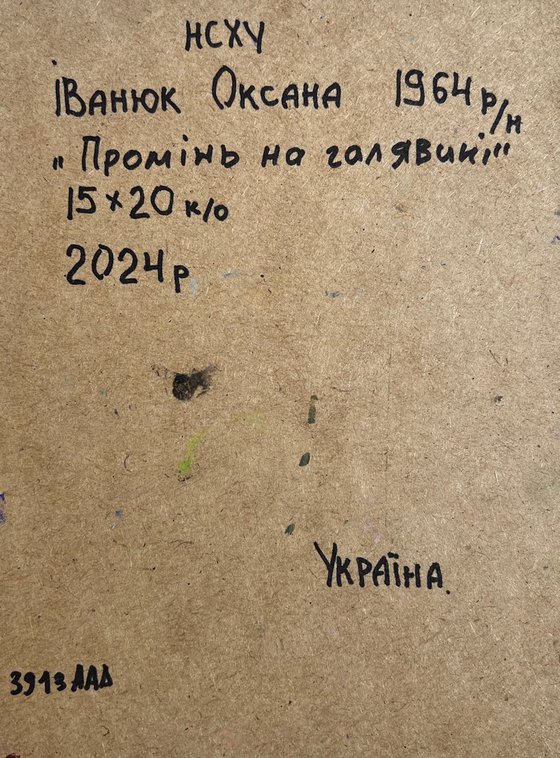 НСХУ
Іванюк Оксана 1964 р/н
„Промінь на галявині"
15×20 к/о
2024 р
Україна.
3913 ААД